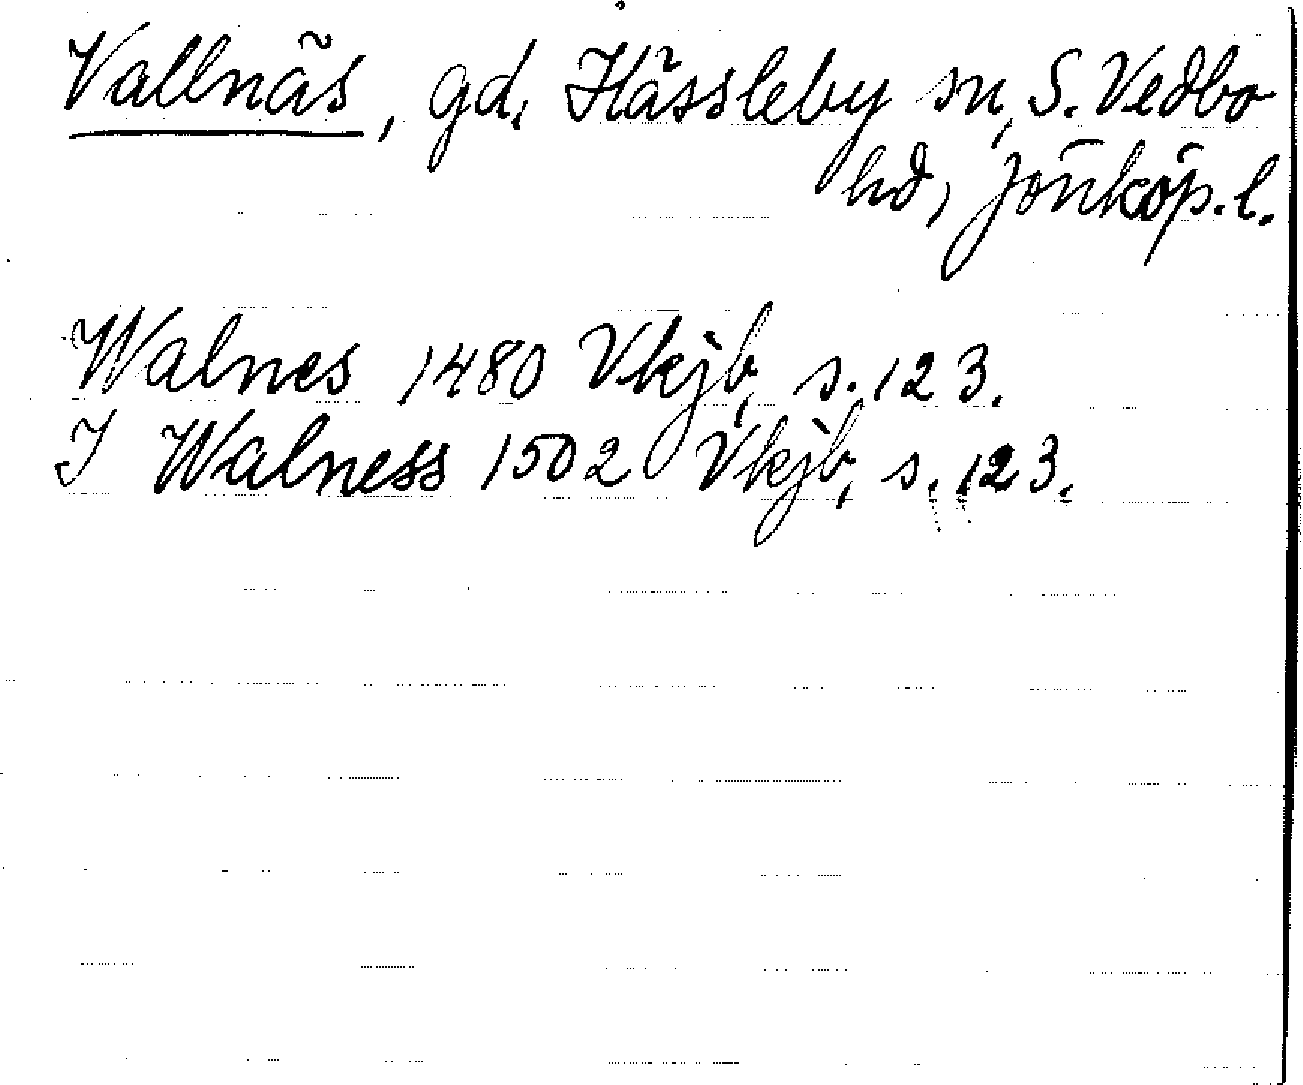 Vallnäs, gd, Hässleby sn, S. Vedbo
hd, Jönköp. l.
Walnes 1480 Vkjb, s. 123.
I Walness 1502 Vkjb, s. 123.